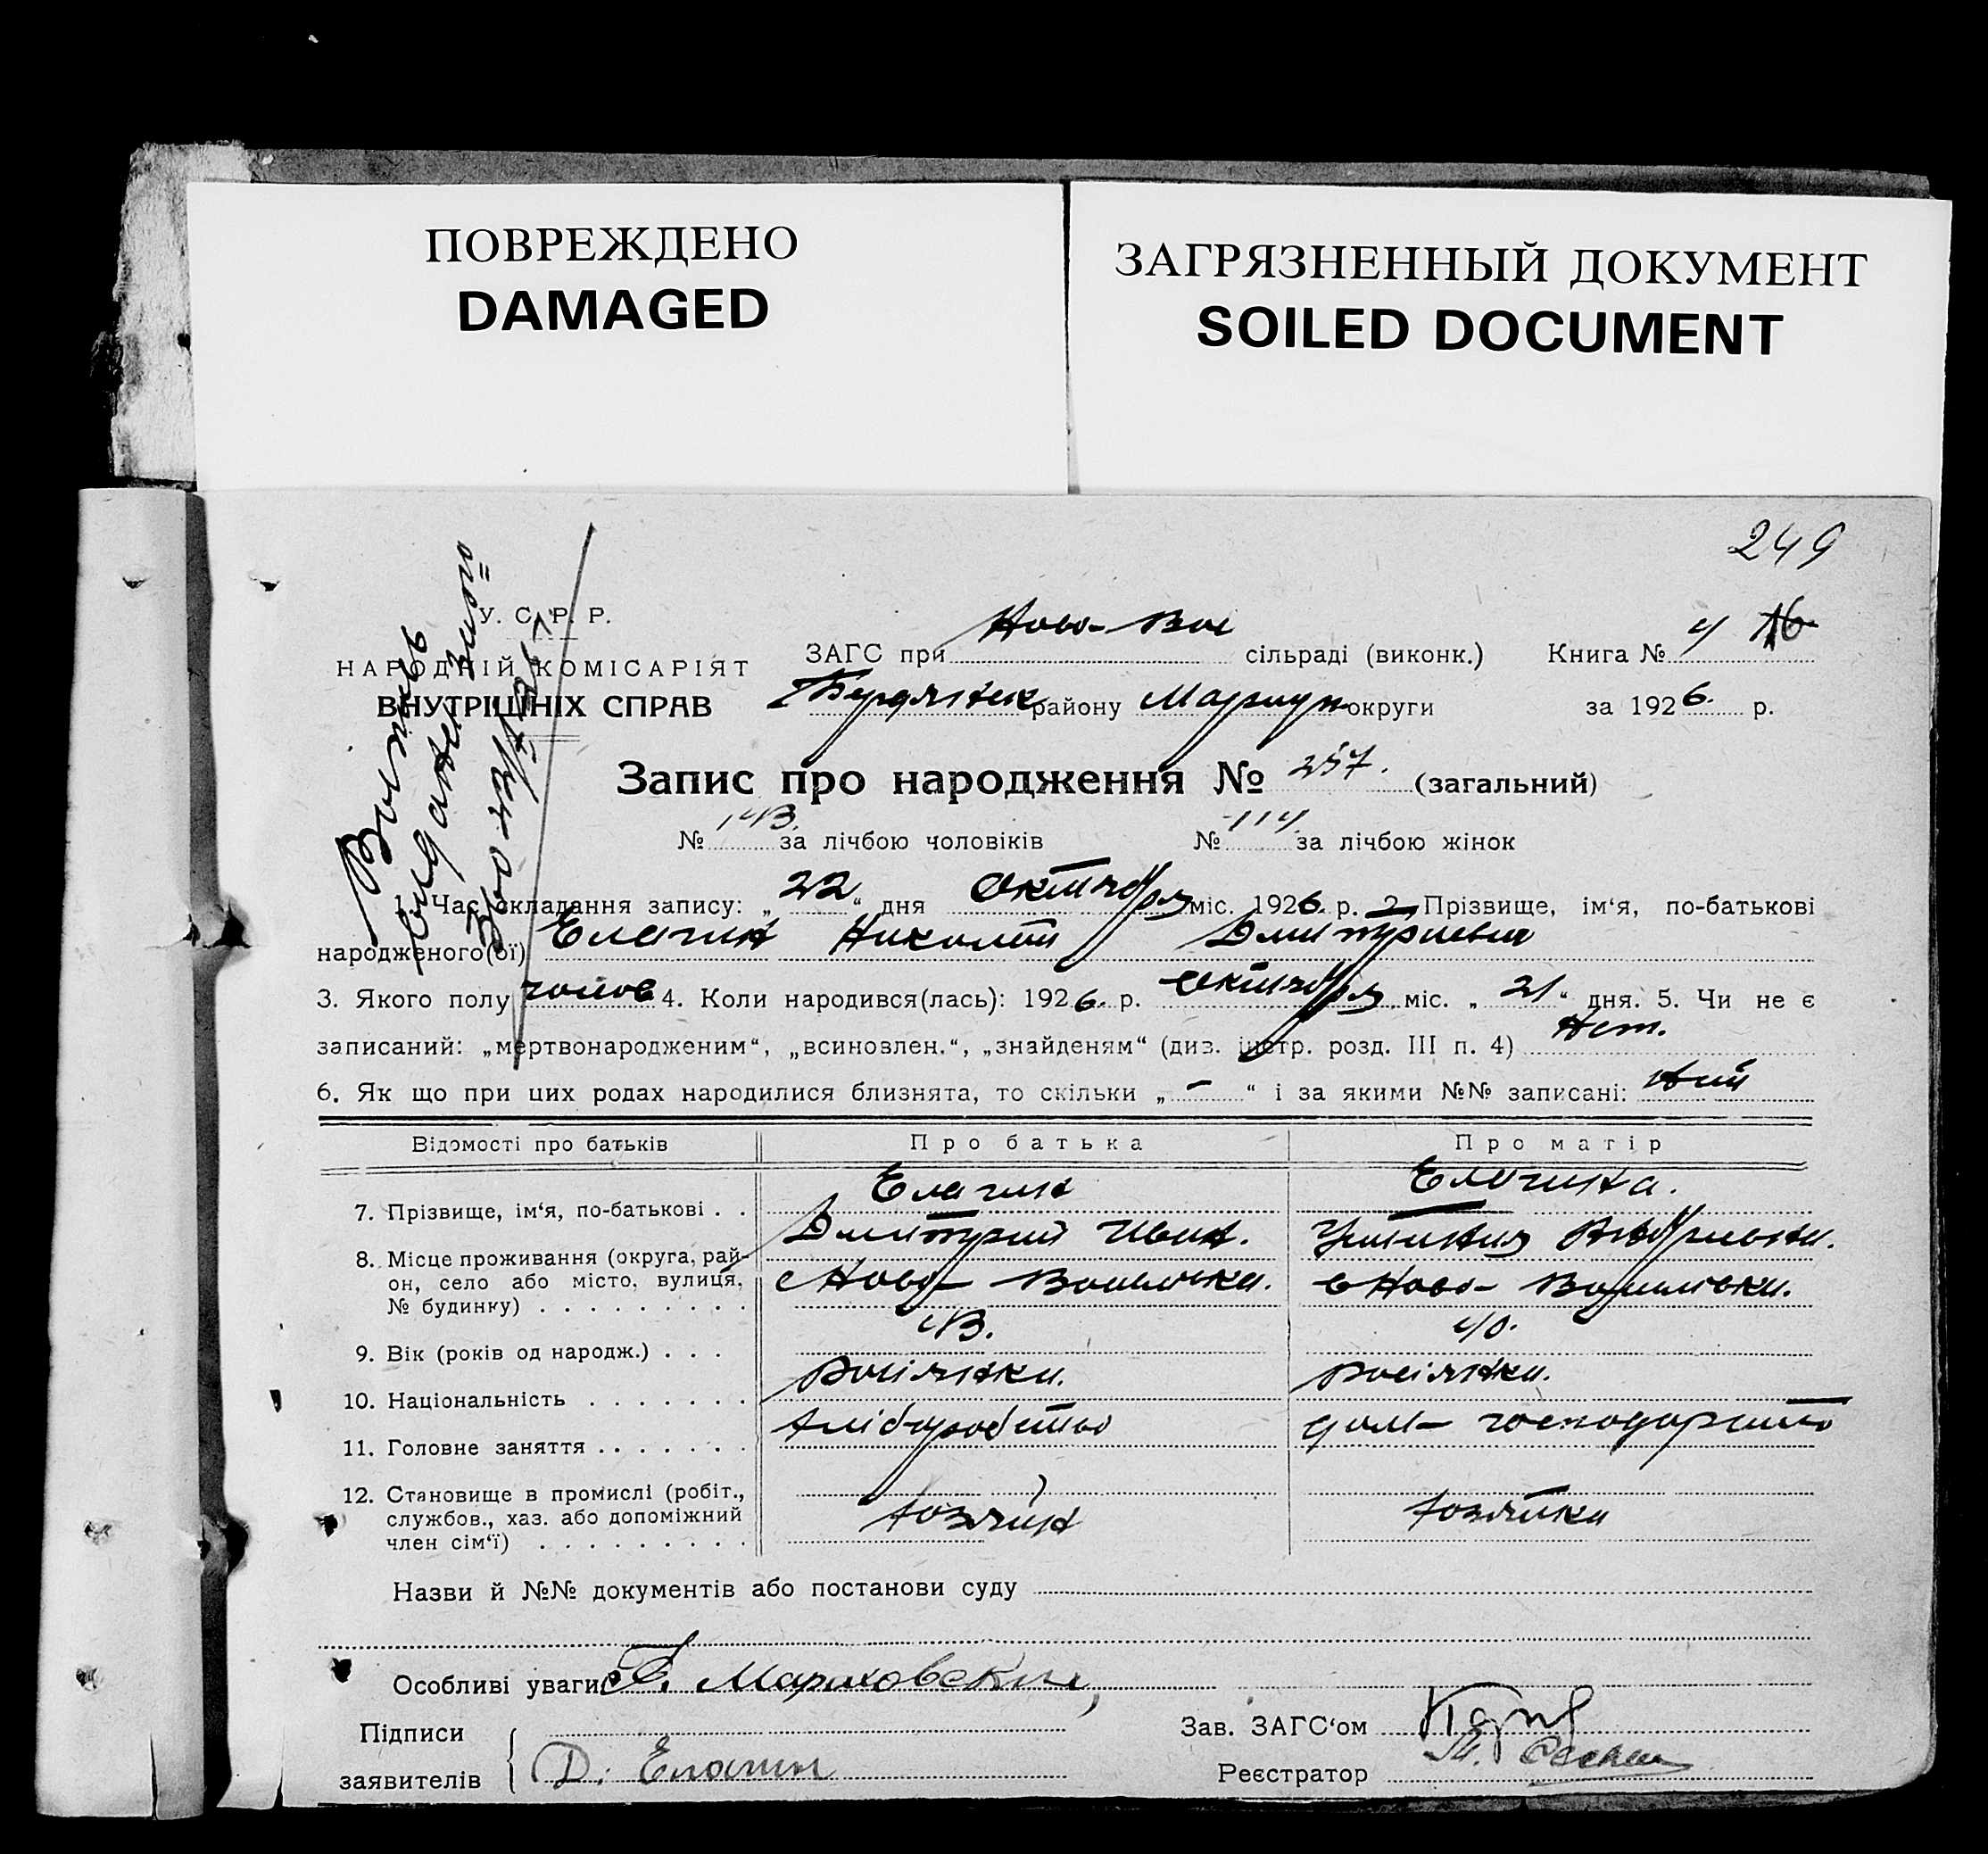 ПОВРЕЖДЕНО
DAMAGED
ЗАГРЯЗНЕННЫЙ ДОКУМЕНТ
SOILED DOCUMENT
249
У. С. Р. Р.
НАРОДНІЙ КОМІСАРІЯТ
ВНУТРІШНІХ СПРАВ
ЗАГС при Ново-Вас сільраді (виконк.) Книга № 4
Бердянск району Мариуп округи за 1926 р.
Запис про народження № 257. (загальний)
№ 143. за лічбою чоловіків № 114. за лічбою жінок
1. Час складання запису: „22“ дня Октября міс. 1926 р. 2. Прізвище, ім‘я, по-батькові
народженого(ої) Елагин Николай Дмитриевич
3. Якого полу чолов 4. Коли народився(лась): 1926 р. Октября міс. „21“ дня. 5. Чи не є
записаний: „мертвонародженим“, „всиновлен.“, „знайденям“ (див. інстр. розд. III п. 4) Нет.
6. Як що при цих родах народилися близнята, то скільки „-“ і за якими №№ записані:
Відомості про батьків Про батька Про матір
7. Прізвище, ім‘я, по-батькові . . Елагин Дмитрий Иван. Елагина.
8. Місце проживання (округа, рай-
он, село або місто, вулиця,
№ будинку) . . . . . . . . . с Ново- с Ново- Васильевки.
9. Вік (років од народж.) . . . 43. 40.
10. Національність . . . . . . . росіянки. росіянки.
11. Головне заняття . . . . . . . хліборобство дом- господарство
12. Становище в промислі (робіт.,
службов., хаз. або допоміжний
член сім‘ї) . . . . . . . . . хозяйн хозяйка
Назви й №№ документів або постанови суду
Особливі уваги Мараховский
Підписи
заявителів Д. Елагин
Зав. ЗАГС‘ом
Реєстратор